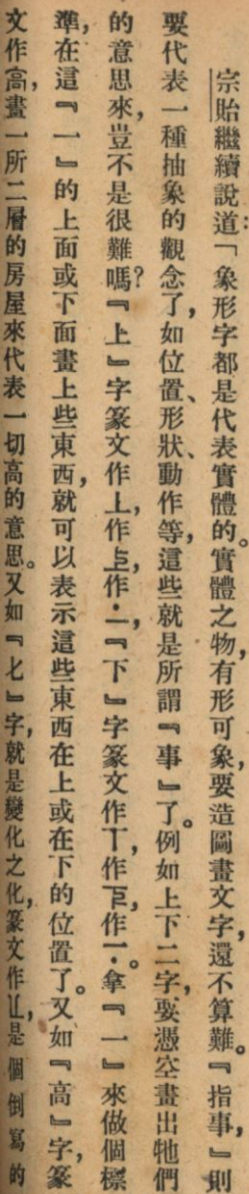 宗貽繼續說道:「象形字都是代表實體的。實體之物,有形可象,要造圖畫文字,還不算難。『指事,』則
要代表一種抽象的觀念了,如位置、形狀、動作等,這些就是所謂『事』了。例如上下二字,要憑空畫出牠們
的意思來,豈不是很難嗎?『上』字篆文作丄,作𠄞,作⺀,『下』字篆文作丅,作𠄟,作⼀.。拿『一』來做個標
準,在這『一』的上面或下面畫上些東西,就可以表示這些東西在上或在下的位置了。又如『高』字,篆
文作髙,畫一所二層的房屋來代表一切高的意思。又如『𠤎』字,就是變化之化,篆文作𠤎,是個倒寫的